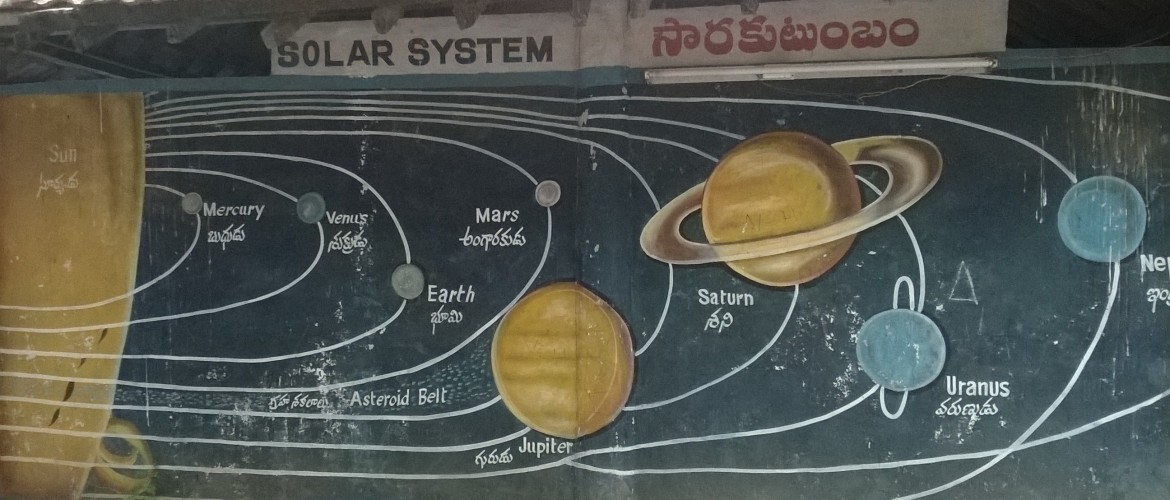 SOLAR SYSTEM
సౌరకుటుంబం
Sun
సూర్యుడు
Mercury
బుధుడు
Venus
శుక్రుడు
Earth
భూమి
Mars
అంగారకుడు
Asteroid Belt
Jupiter
గురుడు
Saturn
శని
Uranus
వరుణుడు
Ne